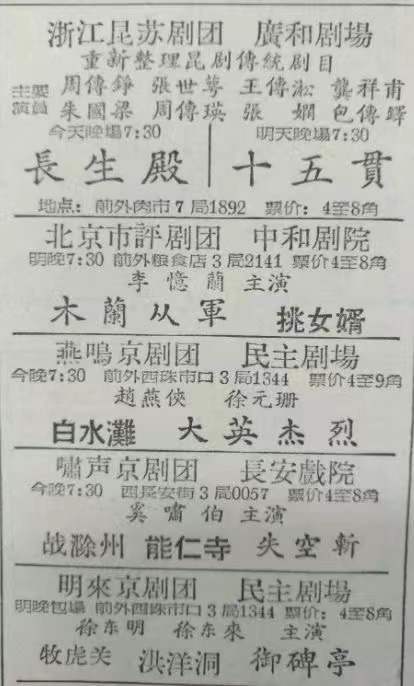 浙江昆苏剧团 廣和剧場
重新整理昆剧傳統剧目
主要演員 周傳錚 張世萼 王傳淞 龔祥甫
朱國梁 周傳瑛 張嫻 包傳鐸
今天晚場7:30 明天晚場7:30
長生殿 十五貫
地点：前外肉市7局1892 票价：4至8角
北京市評剧团 中和剧院
明晚7:30 前外粮食店3局2141 票价4至8角
李憶蘭 主演
木蘭从軍 挑女婿
燕鳴京剧团 民主剧場
今晚7:30 前外西珠市口3局1344 票价：4至9角
趙燕俠 徐元珊
白水灘 大英杰烈
嘯声京剧团 長安戲院
今晚7:30 西長安街3局0057 票价4至8角
奚嘯伯 主演
战滁州 能仁寺 失空斬
明來京剧团 民主剧場
明晚包場 前外西珠市口3局1344 票价：4至8角
徐东明 徐东來 主演
牧虎关 洪洋洞 御碑亭